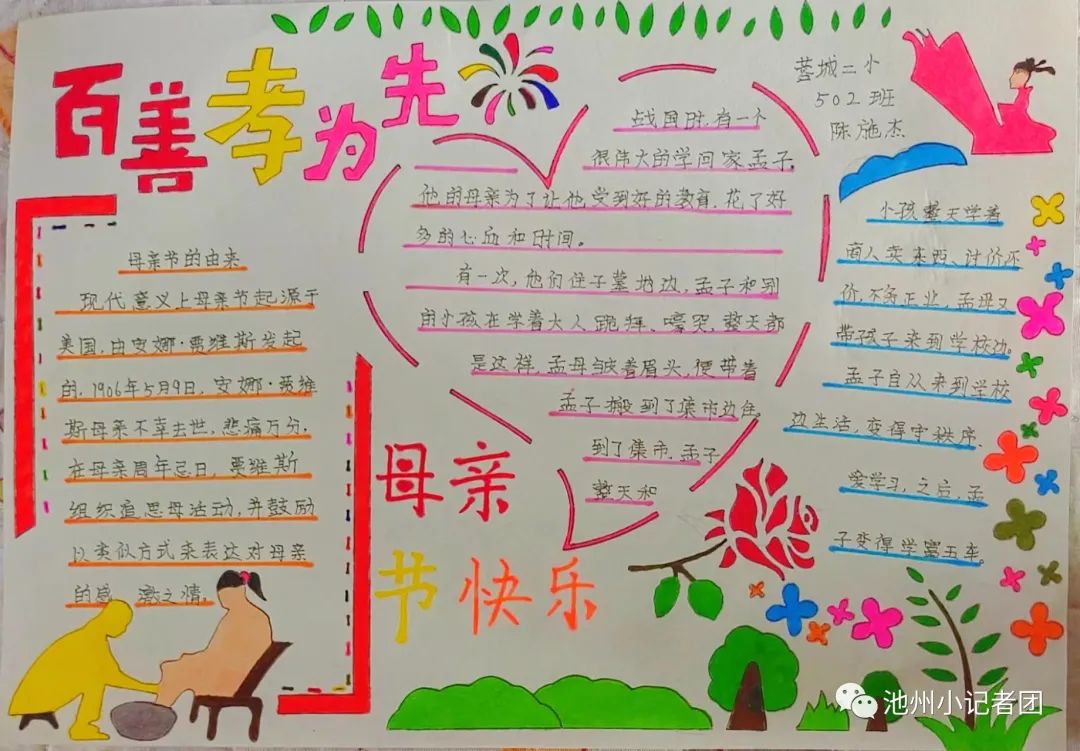 百善孝为先
蓉城二小
502班
陈施杰
母亲节的由来
现代意义上母亲节起源于
美国,由安娜·贾维斯发起
的.1906年5月9日,安娜·贾维
斯母亲不幸去世,悲痛万分.
在母亲周年忌日,贾维斯
组织追思母活动,并鼓励
以类似方式来表达对母亲
的感 激之情.
战国时,有一个
很伟大的学问家孟子.
他的母亲为了让他受到好的教育.花了好
多的心血和时间。
有一次,他们住子墓地边,孟子和别
的小孩在学着大人跪拜、嚎哭,整天都
是这样,孟母皱着眉头,便带着
孟子搬到了集市边住.
到了集市.孟子
整天和
小孩整天学着
商人卖东西、讨价还
价.不务正业,孟母又
带孩子来到学校边。
孟子自从来到学校
边生活,变得守秩序、
爱学习,之后,孟
子变得学富五车。
母亲
节快乐
池州小记者团